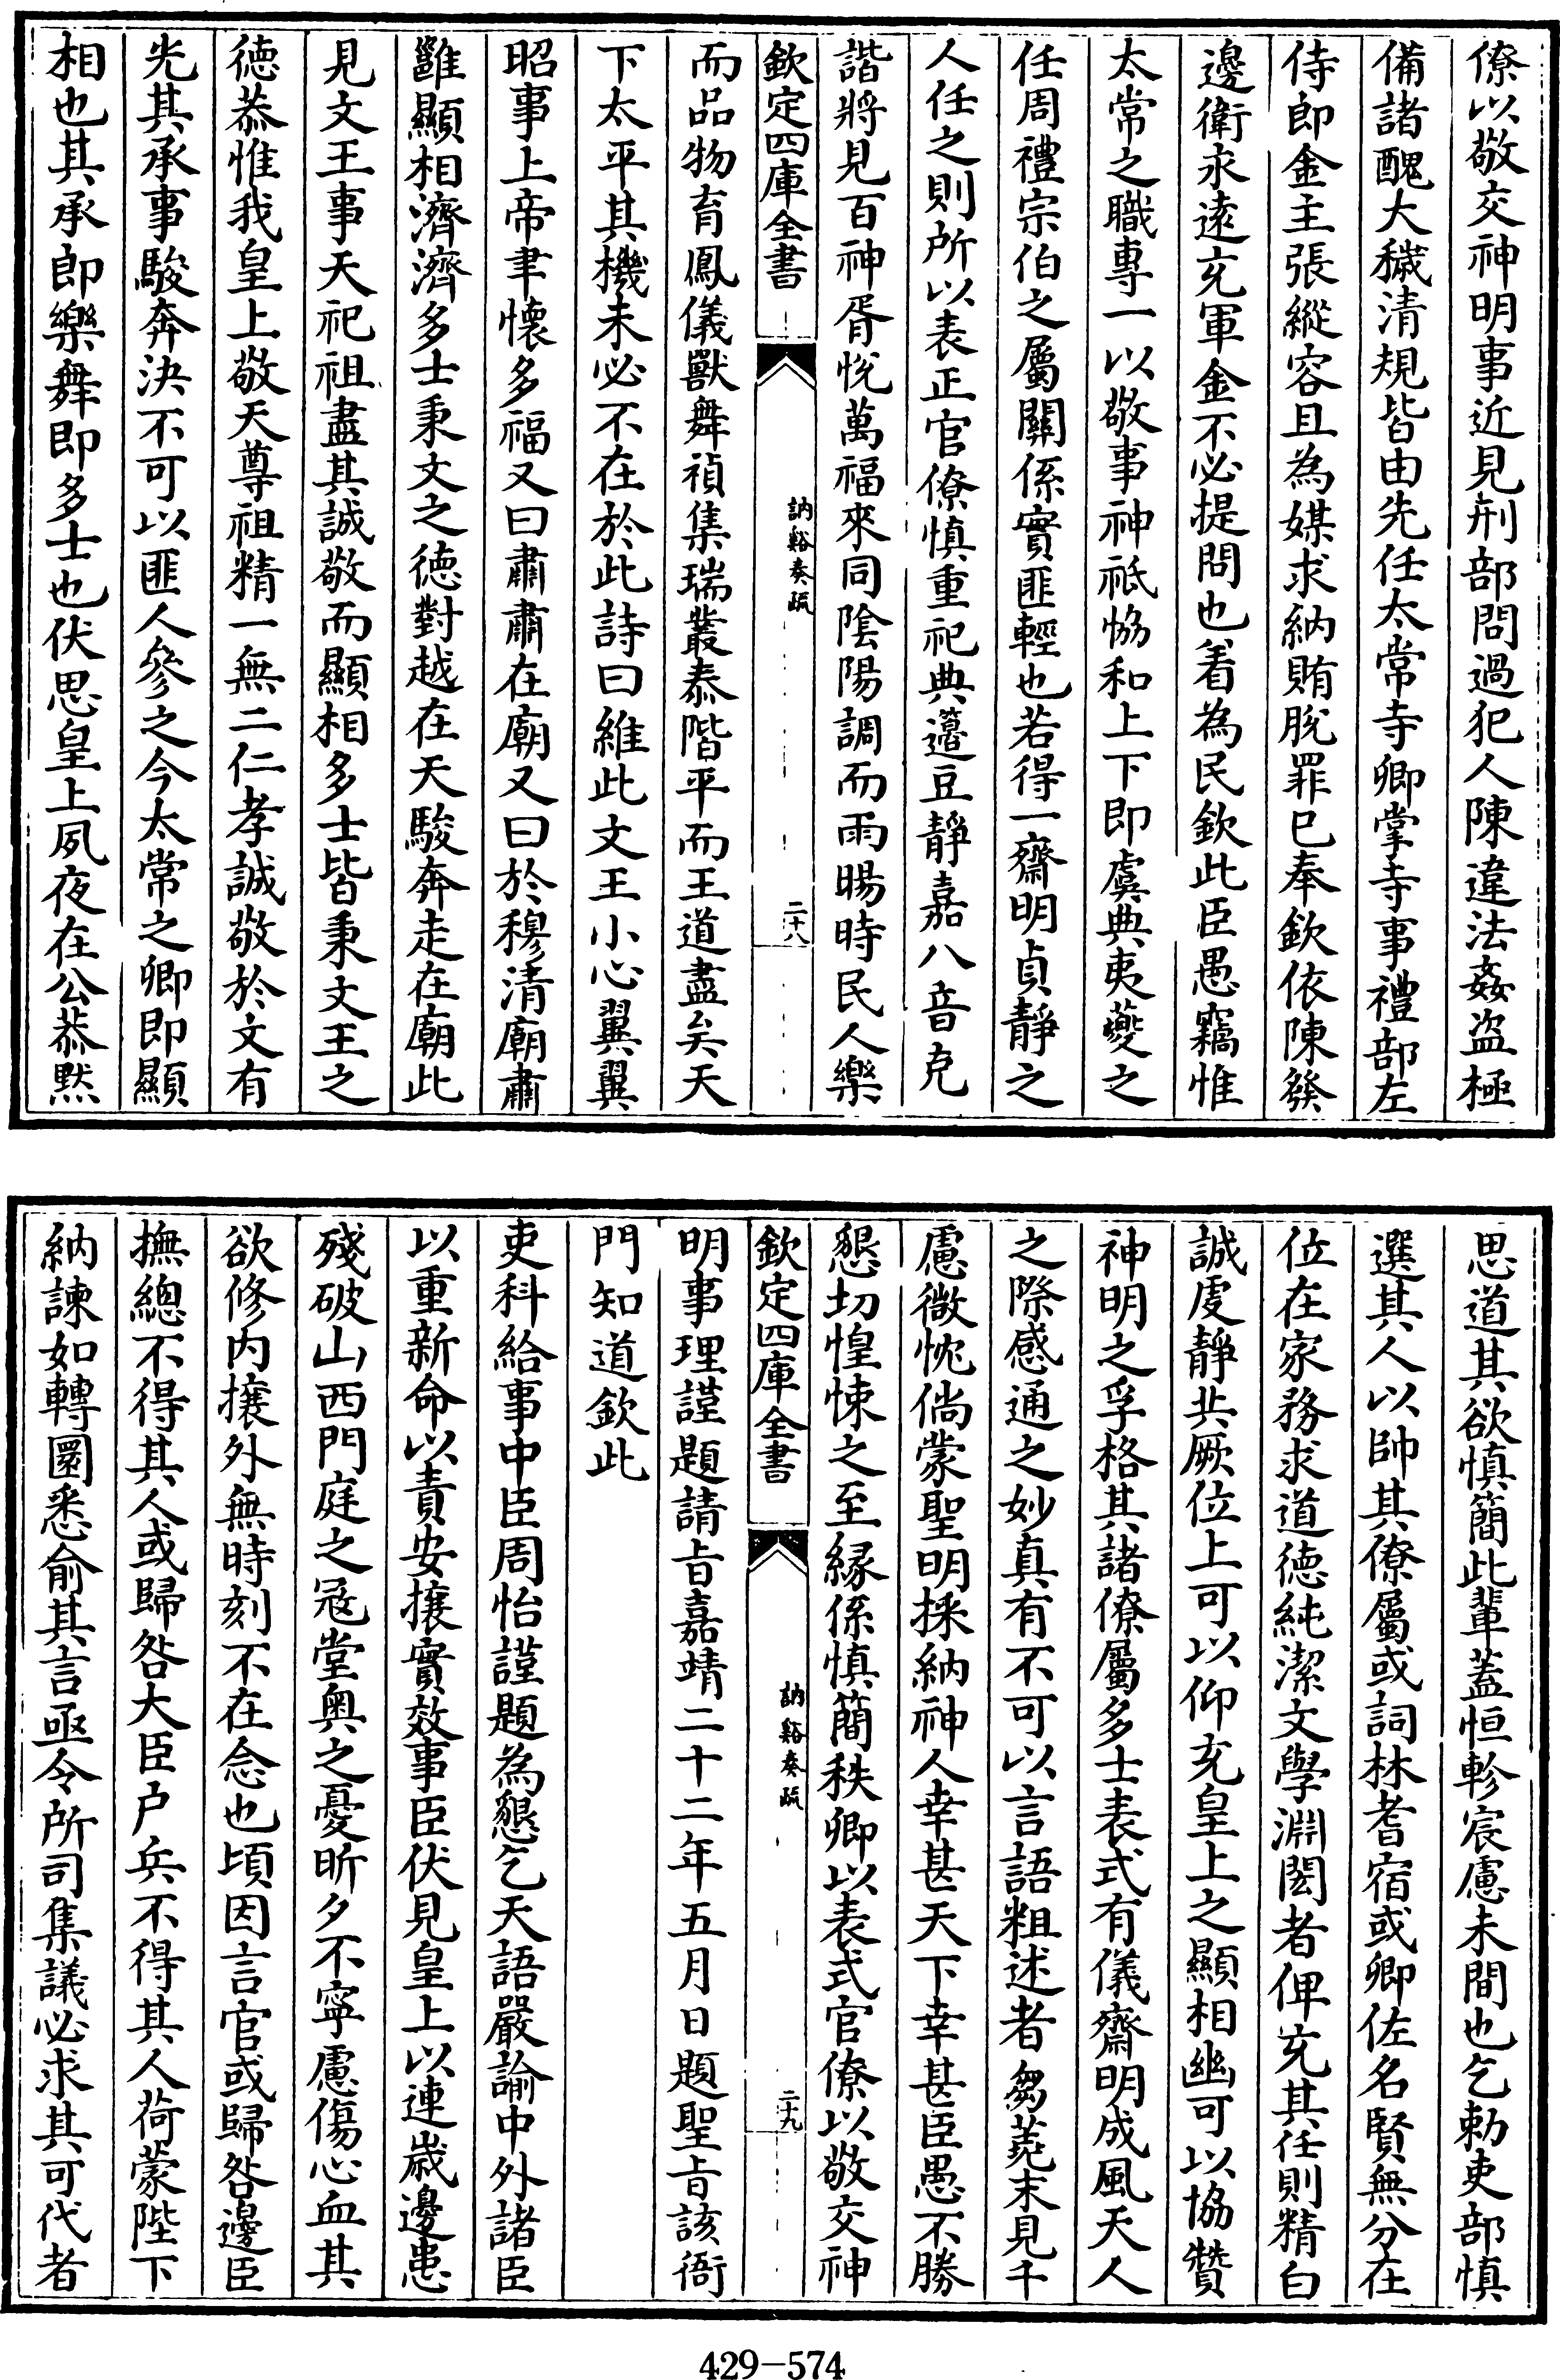 僚以敬交神明事近見刑部問過犯人陳違法姦盜極
備諸醜大穢清規皆由先任太常寺卿掌寺事禮部左
侍郎金主張縱容且為媒求納賄脫罪已奉欽依陳發
邊衛永遠充軍金不必提問也着為民欽此臣愚竊惟
太常之職專一以敬事神祇恊和上下即虞典夷夔之
任周禮宗伯之屬關係實匪輕也若得一齋明貞靜之
人任之則所以表正官僚慎重祀典籩豆靜嘉八音克
諧將見百神胥悅萬福來同陰陽調而雨暘時民人樂
欽定四庫全書
訥谿奏疏
二十八
而品物育鳳儀獸舞禎集瑞叢泰階平而王道盡矣天
下太平其機未必不在於此詩曰維此文王小心翼翼
昭事上帝聿懷多福又曰肅肅在廟又曰於穆清廟肅
雝顯相濟濟多士秉文之德對越在天駿奔走在廟此
見文王事天祀祖盡其誠敬而顯相多士皆秉文王之
德恭惟我皇上敬天尊祖精一無二仁孝誠敬於文有
光其承事駿奔決不可以匪人參之今太常之卿即顯
相也其承即樂舞即多士也伏思皇上夙夜在公恭默
思道其欲慎簡此輩蓋恒軫宸慮未間也乞勅吏部慎
選其人以帥其僚屬或詞林耆宿或卿佐名賢無分在
位在家務求道德純潔文學淵閎者俾充其任則精白
誠虔靜共厥位上可以仰充皇上之顯相幽可以協贊
神明之孚格其諸僚屬多士表式有儀齋明成風天人
之際感通之妙真有不可以言語粗述者芻蕘末見千
慮微忱倘蒙聖明採納神人幸甚天下幸甚臣愚不勝
懇切惶悚之至緣係慎簡秩卿以表式官僚以敬交神
欽定四庫全書
訥谿奏疏
二十九
明事理謹題請旨嘉靖二十二年五月日題聖旨該衙
門知道欽此
吏科給事中臣周怡謹題為懇乞天語嚴諭中外諸臣
以重新命以責安攘實效事臣伏見皇上以連歲邊患
殘破山西門庭之冦堂奥之憂昕夕不寧慮傷心血其
欲修内攘外無時刻不在念也頃因言官或歸咎邊臣
撫總不得其人或歸咎大臣户兵不得其人荷蒙陛下
納諫如轉圜悉俞其言亟令所司集議必求其可代者
429-574